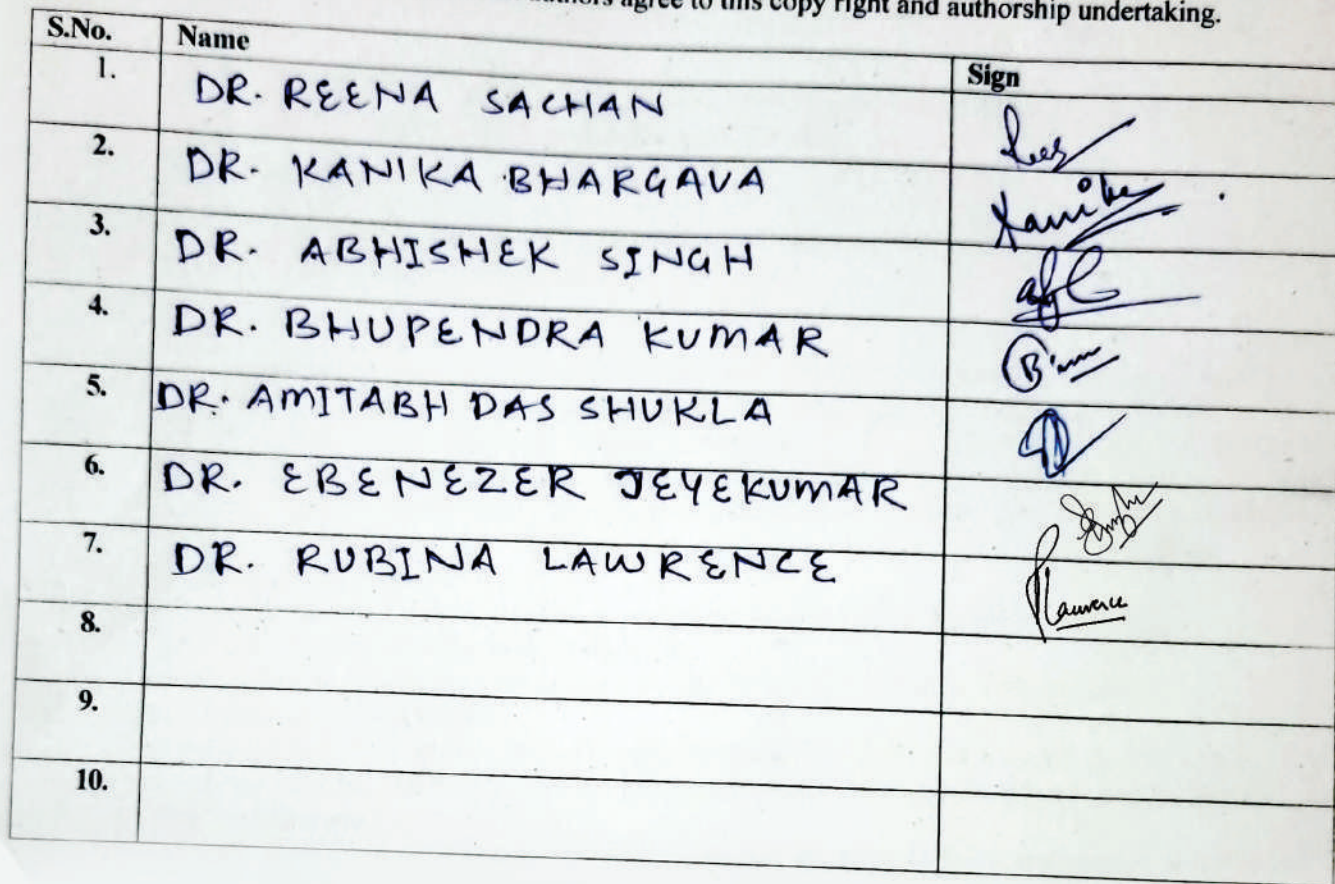 agree to this copy right and authorship undertaking.
S.No. Name Sign
1. DR. REENA SACHAN
2. DR. KANIKA BHARGAVA Kanika
3. DR. ABHISHEK SINGH
4. DR. BHUPENDRA KUMAR
5. DR. AMITABH DAS SHUKLA
6. DR. EBENEZER JEYEKUMAR
7. DR. RUBINA LAWRENCE RLawrence
8.
9.
10.